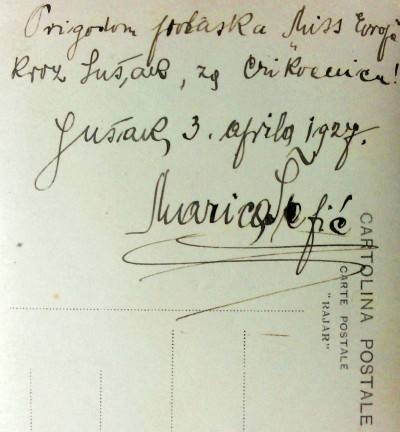 Prigodom prolaska Miss Evrope
kroz Sušak, za Crikvenicu!
Sušak, 3. aprila 1927.
Marica
CARTOLINA POSTALE
CARTE POSTALE
"RAJAR"